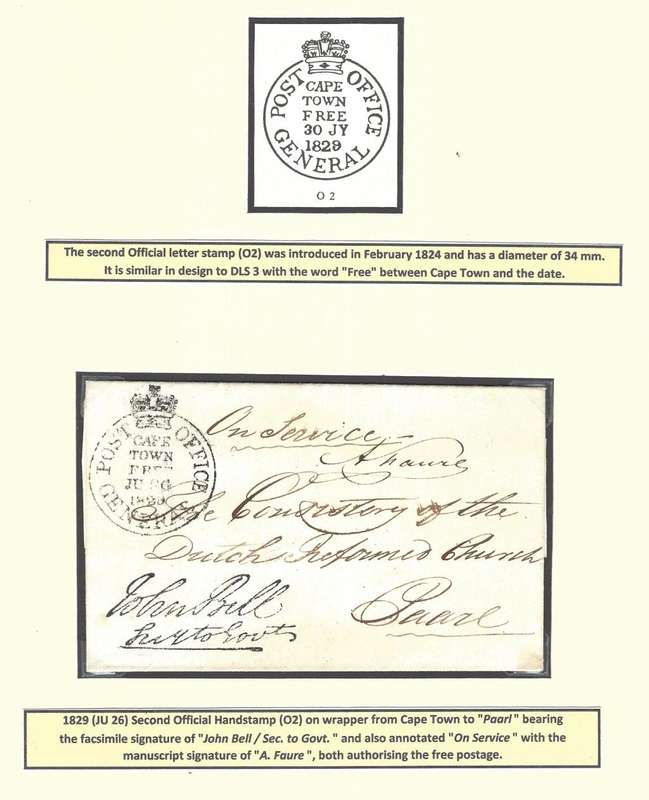 POST OFFICE
CAPE
TOWN
FREE
30 JY
1829
GENERAL
O 2
The second Official letter stamp (O2) was introduced in February 1824 and has a diameter of 34 mm.
It is similar in design to DLS 3 with the word "Free" between Cape Town and the date.
POST OFFICE
CAPE
TOWN
FREE
JU 26
1829
GENERAL
On Service
A Faure
The Consistory of the
Dutch Reformed Church
Paarl
John Bell
Secy to Govt
1829 (JU 26) Second Official Handstamp (O2) on wrapper from Cape Town to "Paarl" bearing
the facsimile signature of "John Bell / Sec. to Govt. " and also annotated "On Service" with the
manuscript signature of "A. Faure", both authorising the free postage.